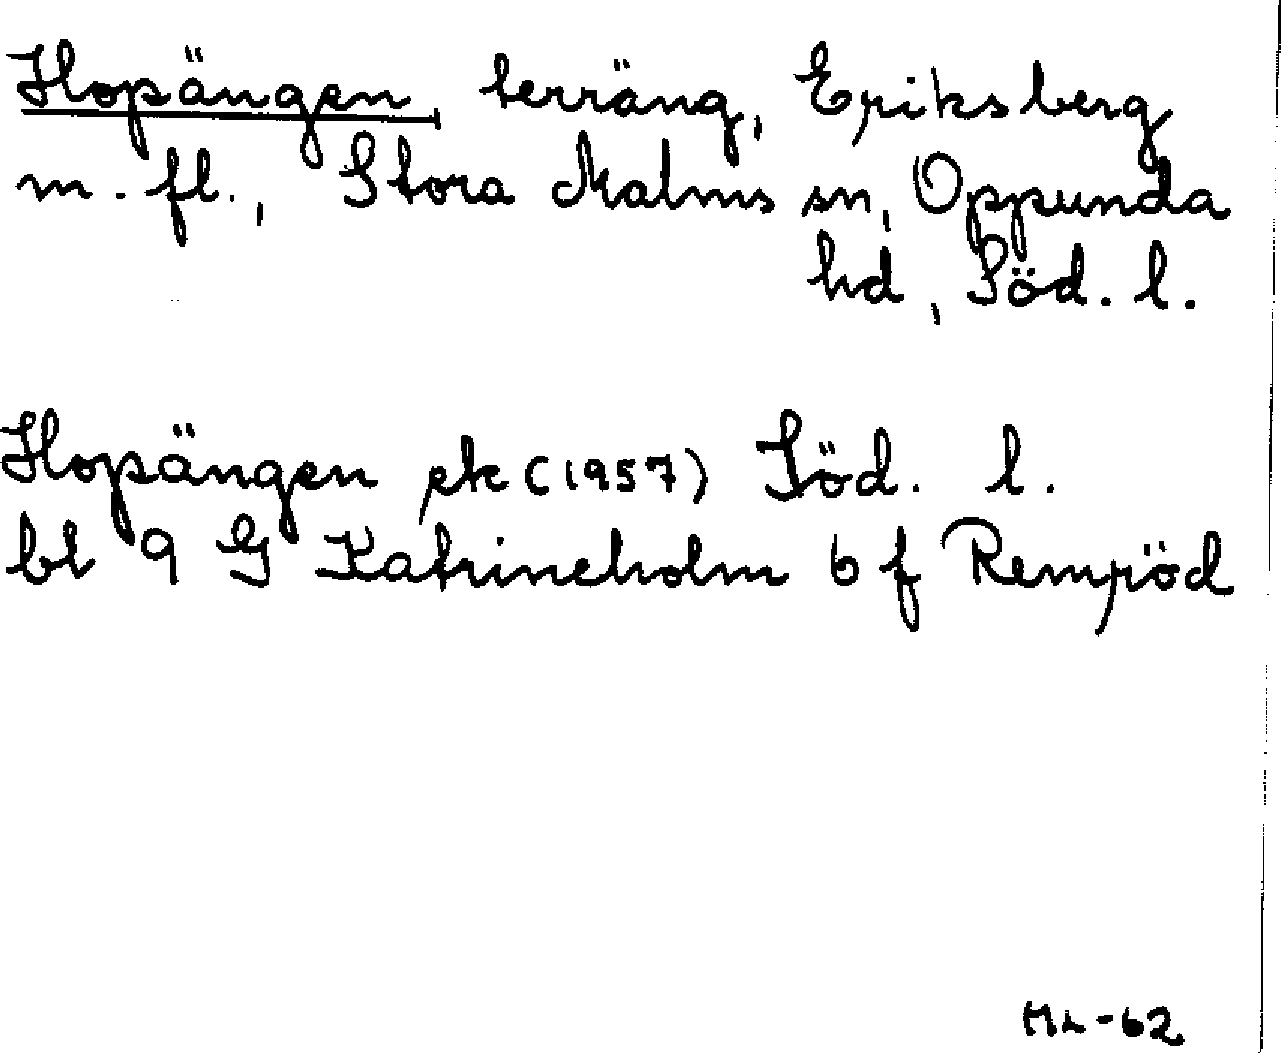 Hopängen, terräng, Eriksberg
m. fl., Stora Malms sn, Oppunda
hd, Söd. l.
Hopängen ek (1957) Söd. l.
bl 9 G Katrineholm 6 f Rempöd
-62